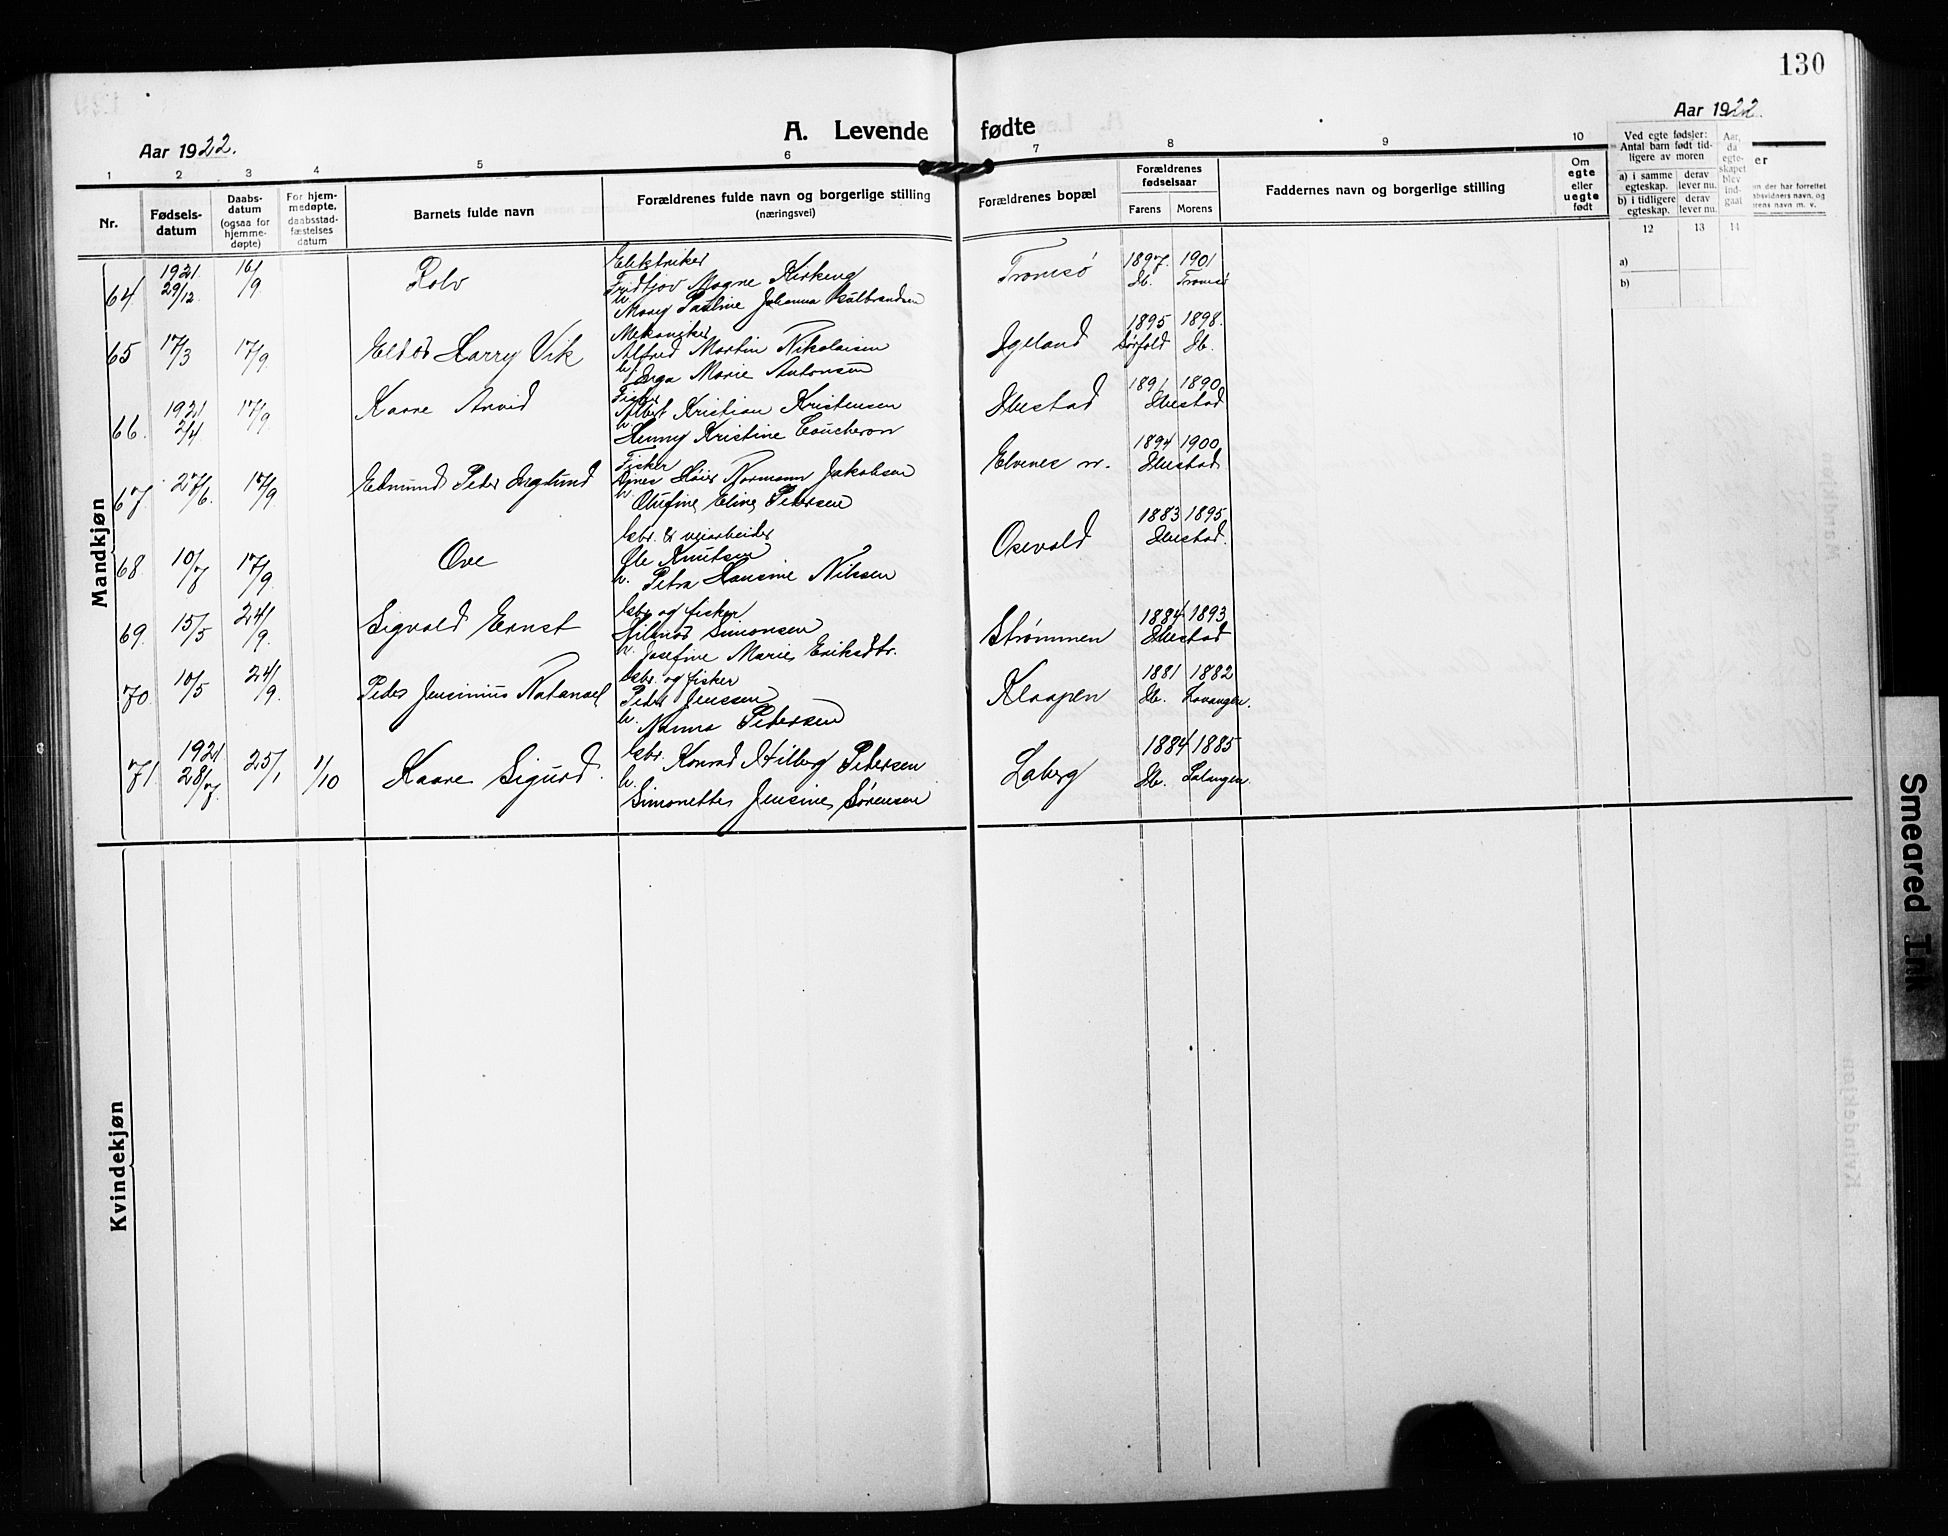 130
A. Levende fødte
Aar 1922.
Aar 1922.
1 2 3 4 5 6 7 8 9 10
Nr.
Fødsels-
datum
Daabs-
datum
(ogsaa for
hjemme-
døpte)
For hjem-
medøpte,
daabsstad-
fæstelses
datum
Barnets fulde navn
Forældrenes fulde navn og borgerlige stilling
(næringsvei)
Forældrenes bopæl
Forældrenes
fødselsaar
Farens Morens
Faddernes navn og borgerlige stilling
Om
egte
eller
uegte
født
Ved egte fødsler:
Antal barn født tid-
ligere av moren
a) i samme
egteskap.
derav
lever nu.
b) i tidligere
egteskap.
derav
lever nu.
Aar,
da
egte-
skapet
blev
ind-
gaat
er
n der har forrettet
12 13 14
a)
b)
Mandkjøn
64 1921 29/12. 16/9 Rolv
Elektriker
Fridtjov Mogne Kirkeng
h. Mary Pauline Johanna Gulbrandsen
Tromsø 1897. Ib. 1901 Tromsø
65 17/3 17/9. Eldor Harry Vik
Mekaniker
Alfred Martin Nikolaisen
h. Inga Marie Antonsen
Igeland 1895 Sørfold 1898. Ib.
66. 1921 2/4 17/9. Kaare Arvid
Fisker
Albert Kristian Kristensen
h. Henny Kristine Coucheron
Ibestad 1891 1890 Ibestad
67. 27/6. 17/9. Edmund Peder Ingolund
Fisker
Normann Jakobsen
h. Olufine Eline Petersen
Elvenes 1894 1900 Ibestad
68. 10/7 17/9. Ove
Gbr. & veiarbeider
Ole Knutsen
h. Petra Hansine Nilssen
Osevold 1883 1895 Ibestad.
69. 15/5 24/9. Sigvald Ernst
Gbr og fisker
Hilmar Simonsen
h. Josefine Marie Eriksdtr.
Strømmen 1884 1893 Ibestad
70. 10/5 24/9. Peder Jensinius Natanael
Gbr. og fisker
Peder Jenssen
h. Nanna Petersen
Kloppen 1881 Ib. 1882 Lavangen.
71 1921 28/7. 25/1 1/10 Kaare Sigurd.
Gbr. Konrad Hilberg Petersen
h. Simonette Jensine Sørensen
Laberg 1884 Ib. 1885 Salangen.
Kvindekjøn
Smeared Ink